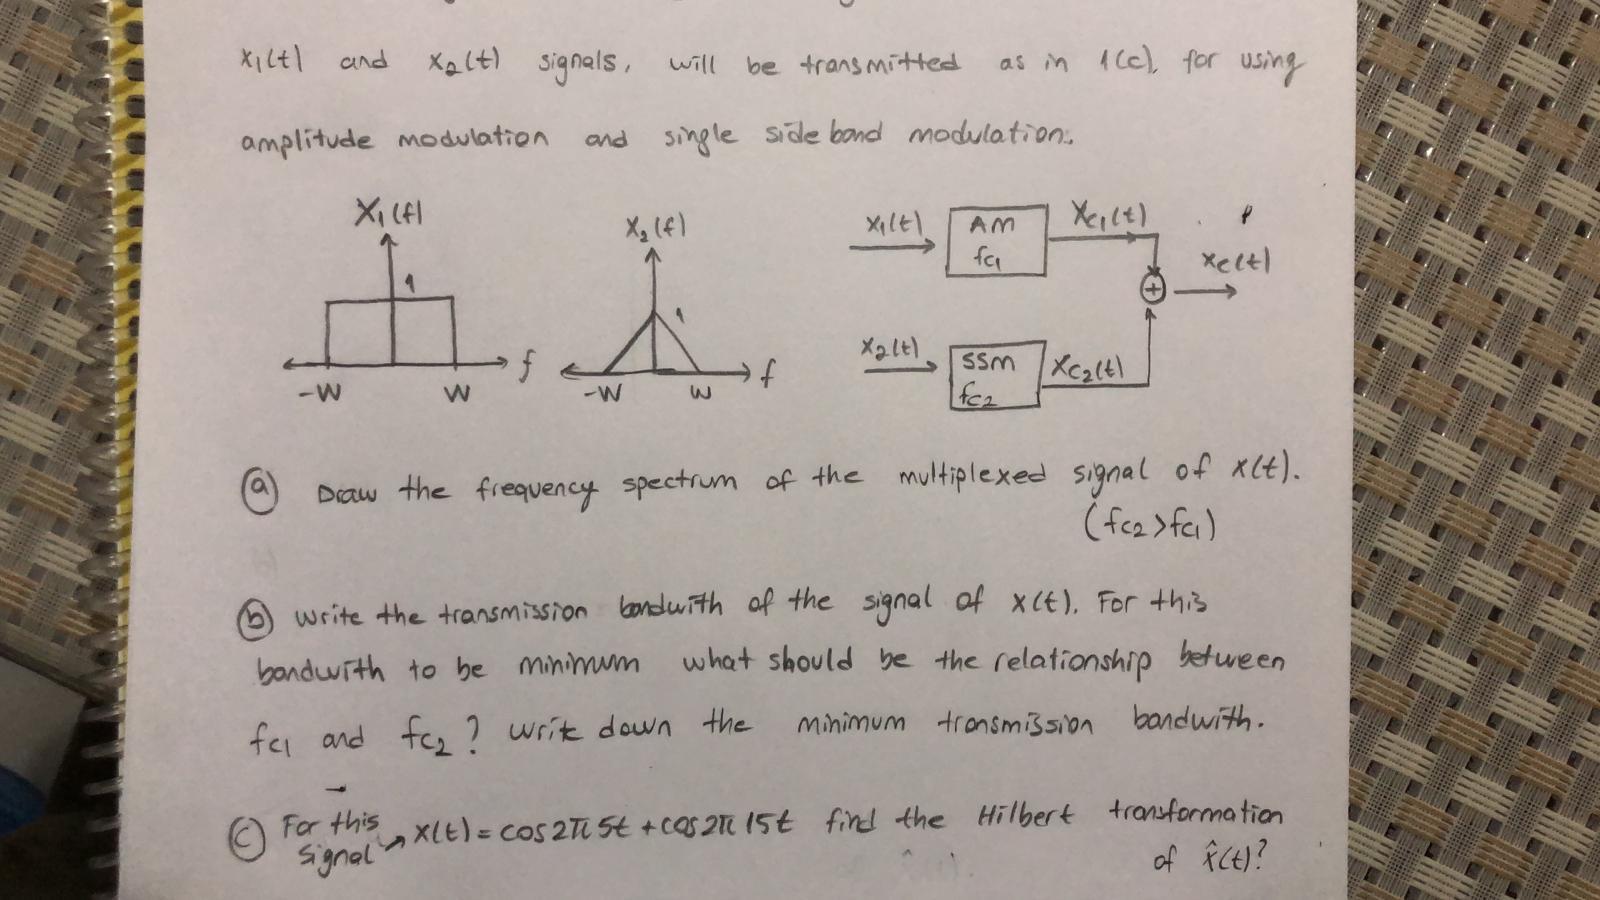 x1(t) and x2(t) signals, will be transmitted as in 1(c), for using
amplitude modulation and single side band modulation.
X1(f)
1
-W W f
X2(f)
1
-W W f
x1(t) AM fc1 Xc1(t)
xc(t)
+
x2(t) SSM fc2 Xc2(t)
(a) Draw the frequency spectrum of the multiplexed signal of x(t).
(fc2>fc1)
(b) Write the transmission bandwith of the signal of x(t). For this
bandwith to be minimum what should be the relationship between
fc1 and fc2? Write down the minimum transmission bandwith.
(c) For this signal → x(t) = cos2π5t + cos2π15t find the Hilbert transformation
of x̂(t)?